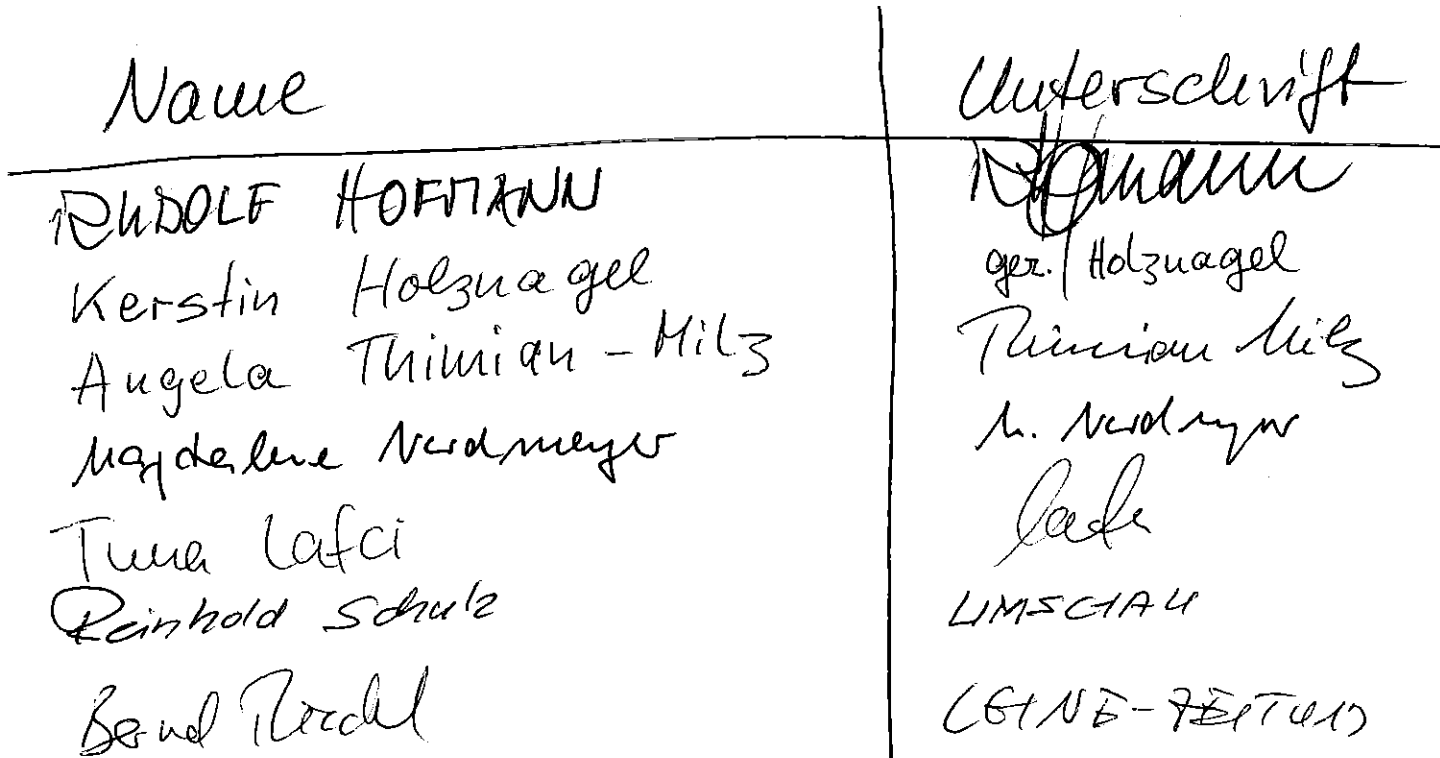 Name Unterschrift
RUDOLF HOFMANN RHofmann
Kerstin Holznagel gez. Holznagel
Angela Thimian - Milz Thimian Milz
Magdalene Nordmeyer M. Nordmeyer
Tuna Lafci Lafci
Reinhold Schulz UMSCHAU
Bernd LEINE-ZEITUNG